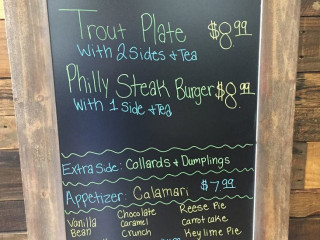 Trout Plate $8.99
With 2 Sides & Tea
Philly Steak Burger $8.99
With 1 Side & Tea
Extra Side: Collards & Dumplings
Appetizer: Calamari $7.99
Vanilla Bean
Chocolate Caramel Crunch
Reese Pie
Carrot cake
Key lime Pie